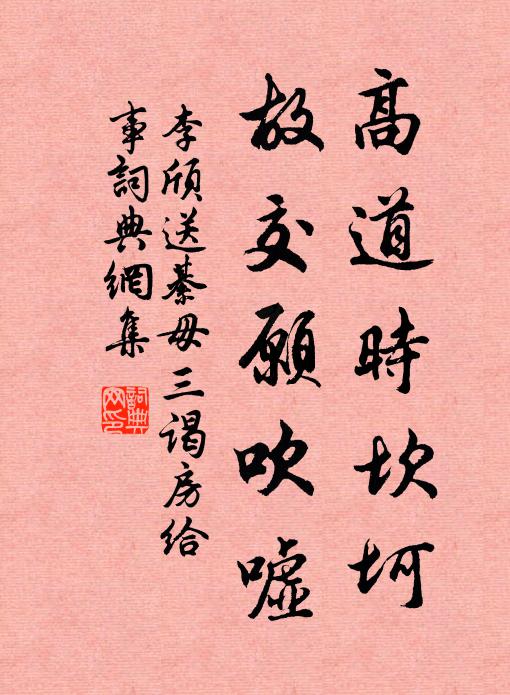 高道時坎坷
故交願吹噓
李頎送綦毋三謁房給
事詞典網集
詞典
网印